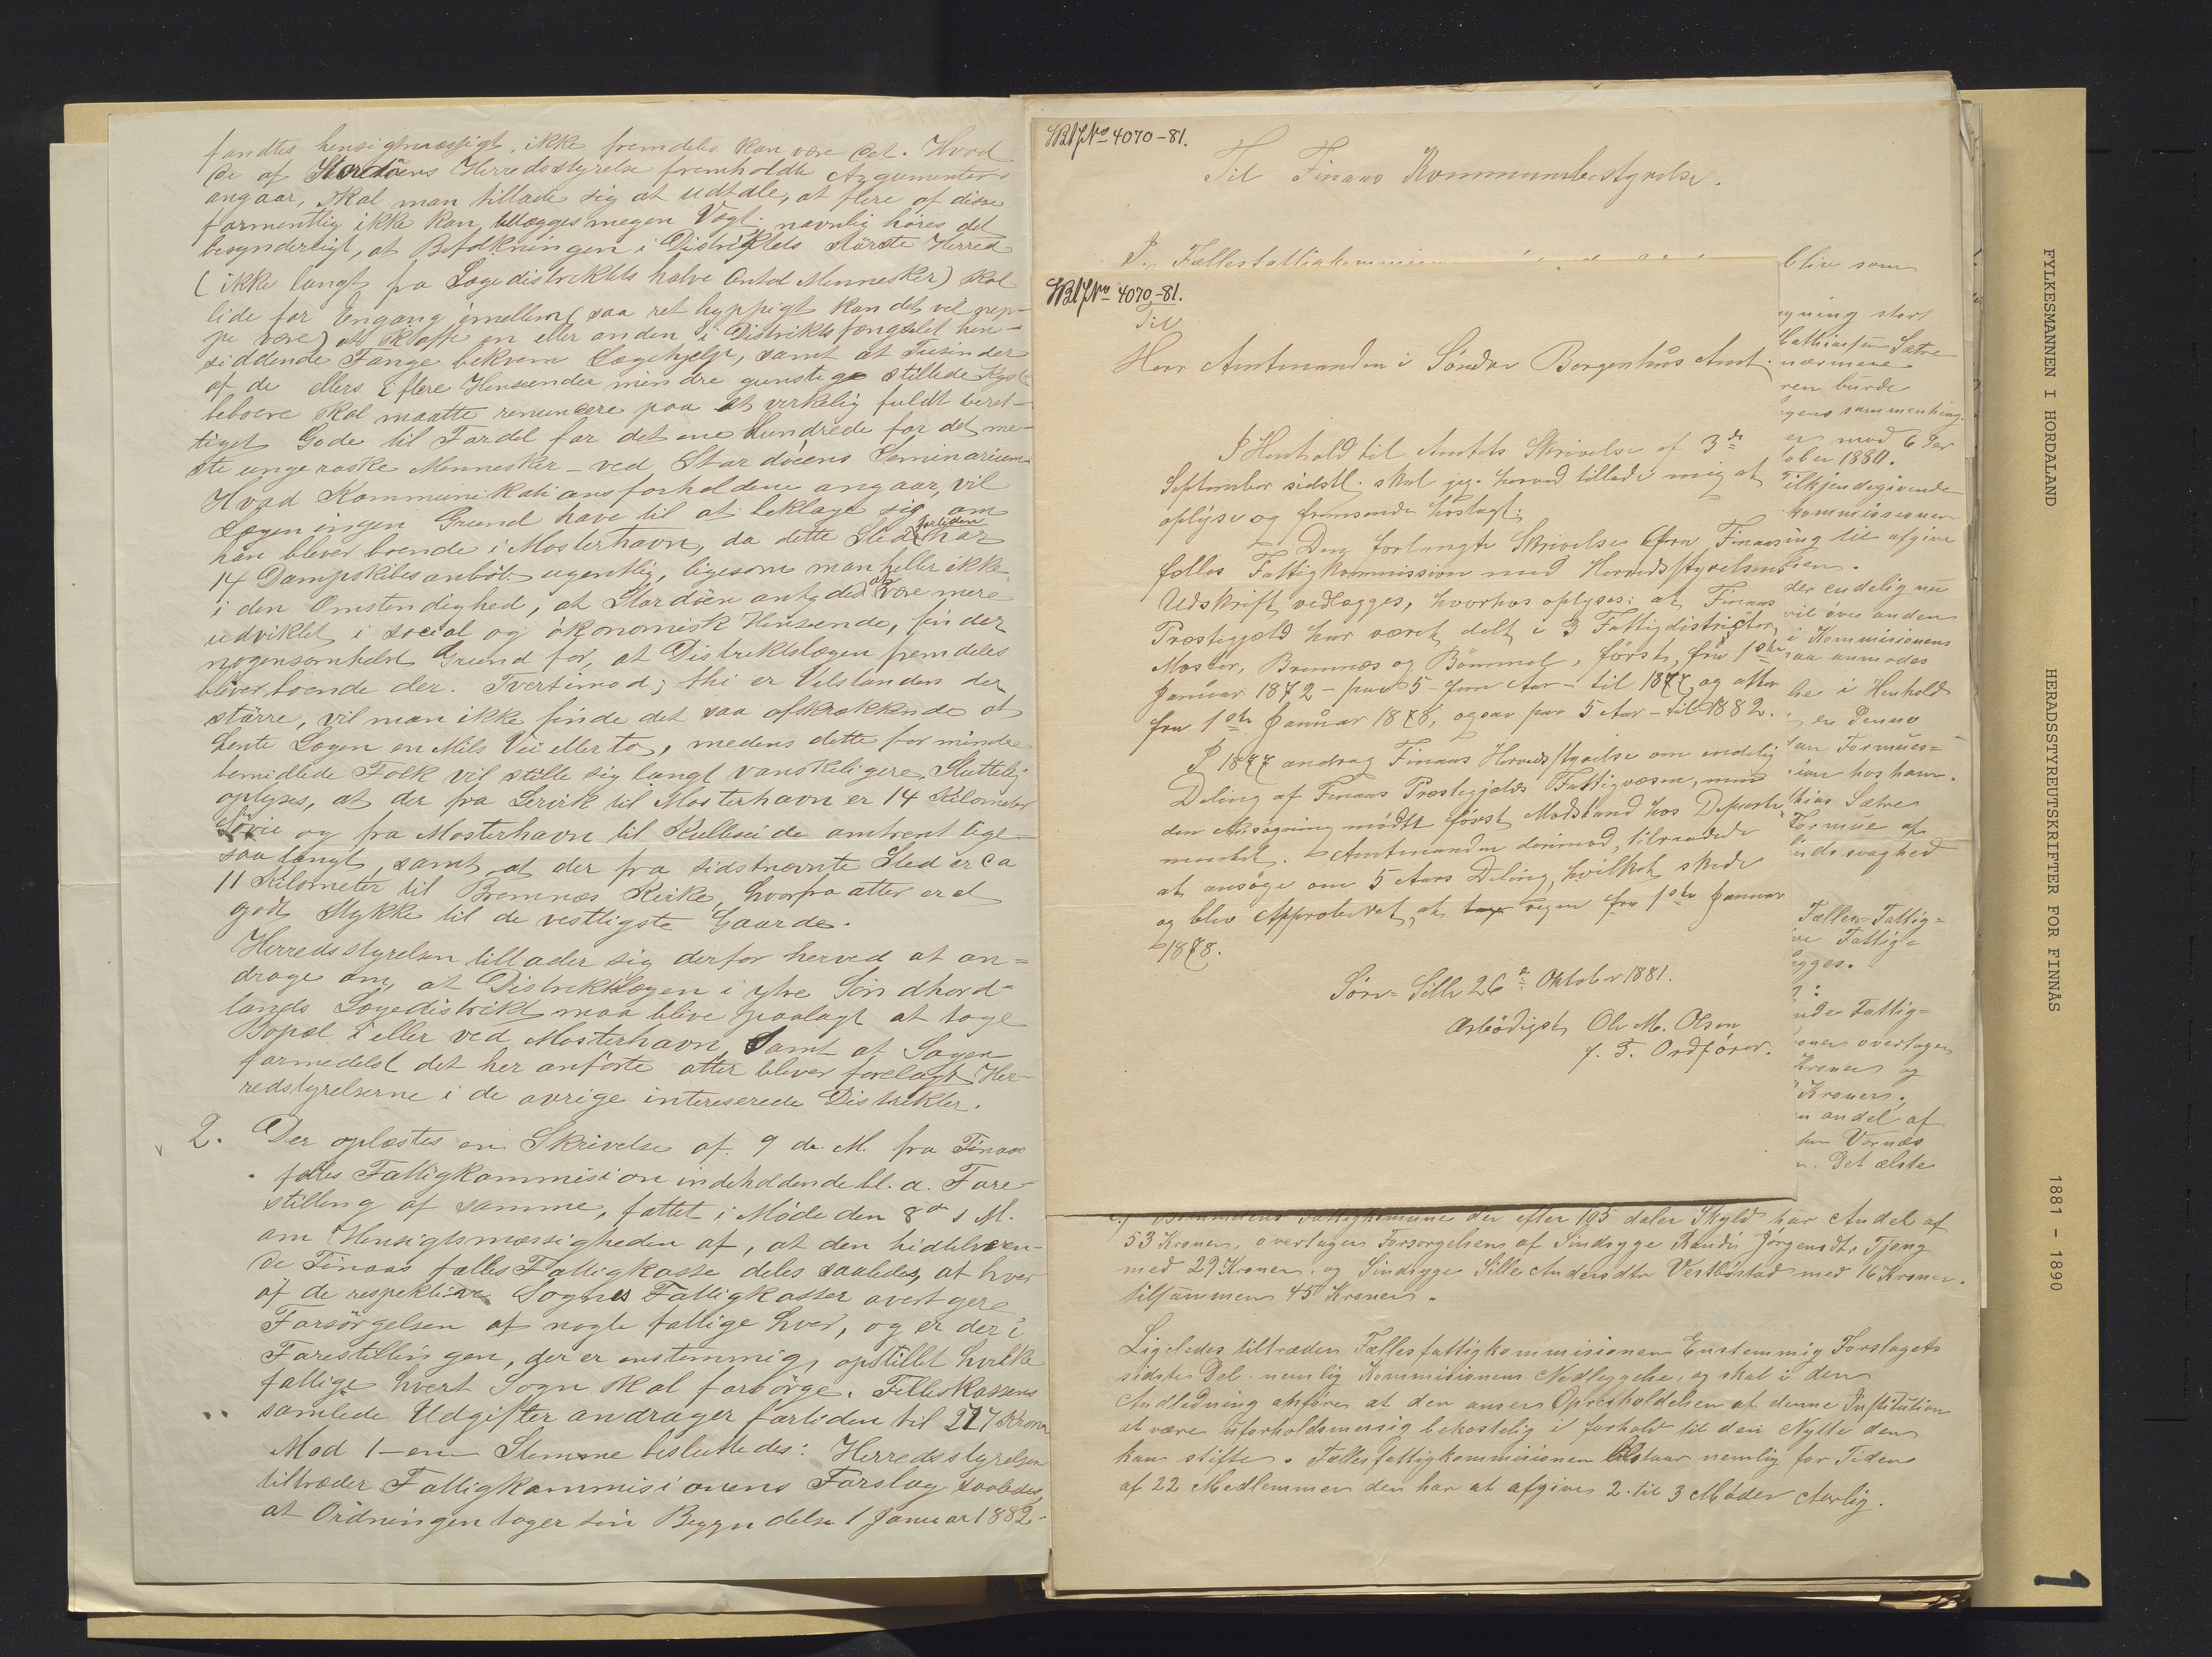 fandtes hensigtmæssigt, ikke fremdeles kan være det. Hvad
de af Stordöens Herredsstyrelse fremholdte Argumenter
angaar, skal man tillade sig at udtale, at flere af disse
formentlig ikke kan tillægges megen Vægt; navnlig höres det
besynderligt, at Befolkningen i Distriktets störste Herred
(ikke langt fra Lægedistriktets halve Antal Mennesker) skal
lide for Engang emellem (saa ret hyppigt kan det vel nep-
pe være) at skaffe en eller anden i Distriktsfængslet hen-
siddende Fange bekvem Lægehjelp, samt at Tusinder
af de ellers i flere Henseender mindre gunstige stillede Kyst
beboere skal maatte renuncere paa et virkelig fuldt beret-
tiget Gode til Fordel for det ene Hundrede for det me-
ste unge raske Mennesker - ved Stordöens Seminarium.
Hvad Kommunikationsforholdene angaar, vil
Lægen ingen Grund have til at beklage sig om
han bliver boende i Mosterhavn, da dette Sted fortiden har
14 Dampskibsanlöb ugentlig, ligesom man heller ikke
i den Omstendighed, at Stordöen antydes at være mere
udviklet i social og ökonomisk Henseende, finder
nogensomhelst Grund for, at Distriktslægen fremdeles
bliver boende der. Tvertimod; thi er Velstanden der
större, vil man ikke finde det saa afskrækkende at
hente Lægen en Mils Vei eller to, medens dette for mindre
bemidlede Folk vil stille sig langt vanskeligere. Sluttelig
oplyses, at der fra Lervik til Mosterhavn er 14 Kilometer
Sövei og fra Mosterhavn til Kulleseide omtrent lige-
saa langt, samt at der fra sidstnævnte Sted er ca
11 Kilometer til Bremnæs Kirke, hvorfra atter er et
godt Stykke til de vestligste Gaarde.
Herredsstyrelsen tillader sig derfor herved at an=
drage om, at Distriktslægen i ytre Söndhord-
lands Lægedistrikt maa blive paalagt at tage
Bopæl i eller ved Mosterhavn samt at Sagen
formedelst det her anförte atter bliver forelagt Her-
redstyrelserne i de övrige interesserede Distrikter.
2. Der oplæstes en Skrivelse af 9 d. M. fra Finaas
fælles Fattigkommision indeholdende bl. a. Fore-
stilling af samme, fattet i Möde den 8de s M.
om Hensigtsmæssigheden af, at den hidtilværen-
de Finaas fælles Fattigkasse deles saaledes, at hver
af de respektive Sognes Fattigkasser overtager
Forsörgelsen af nogle fattige hver, og er der i
Forestillingen, der er enstemmig, opstillet hvilke
fattige hvert Sogn skal forsörge. Felleskassens
samlede Udgifter andrager fortiden til 227 Kroner
Mod 1-en Stemme besluttedes: Herredsstyrelsen
tiltræder Fattigkommisionens Forslag saaledes,
at Ordningen tager sin Begyndelse 1 Januar 1882.
4070-81.
Til Finaas Kommunebestyrelse.
blive som
4070-81.
Til
Herr Amtmanden i Söndre Bergenhus Amt.
I Henhold til Amtets Skrivelse af 3de
September sidstl. skal jeg herved tillade mig at
oplyse og fremsende höslagt:
Den forlangte Skrivelse fra Finaas
fælles Fattigkommission med Herredsstyrelsens
Udskrift vedlægges, hvorhos oplyses: at Finaas
Præstegjæld har været delt i 3 Fattigdistrikter,
Moster, Bremnæs og Bömmel, först, fra 1ste
Januar 1872 - paa 5-fem Aar - til 1877 og atter
fra 1ste Januar 1878, ogsaa paa 5 Aar - til 1882.
I 1877 androg Finaas Herredsstyrelse om endelig
Deling af Finaas Præstegjælds Fattigvæsen, men
den Ansögning mödte först Modstand hos Departe
mentet. Amtmanden derimod, tilraadede
at ansöge om 5 Aars Deling, hvilket skede
og blev Approberet, at regne fra 1ste Januar
1878.
Söre-Sille 26de Oktober 1881.
Ærbödigst Ole M. Olsen
f. T. Ordförer.
ygning stort
Mathiassen Sætre
nærmere
ren burde
gens sammenheng.
er mod 6 Per
tober 1880.
Tilkjendegivende
kommissionen
ing til afgive
der endelig nu
vil över anden
i Kommisionens
saa anmodes
he i Henhold
er Penno
an Formues=
ion hos ham.
thias Sætres
Formue af
aandssvaghed
Fælles Fattig=
ve Fattig=
egges.
nde Fattig=
oner overtager
Kroner og
Kroner,
n andel af
Vernæs
n. Det ælste
Fattigkomune der efter 195 daler Skyld har Andel af
53 Kroner, overtager Forsorgelsen af Sindsyge Randi Jörgensdtr Tjong
med 29 Kroner og Sindsyge Sille Andersdtr Vestböstad med 16 Kroner.
tilsammen 45 Kroner.
Ligeledes tiltræder Fællesfattigkommisionen Enstemmig Forslagets
sidste Del nemlig Kommisionens Nedleggelse, og skal i den
Andledning anföres at den anser Opretholdelsen af denne Institution
at være uforholdsmæssig bekostelig i forhold til den Nytte den
kan stifte. Fællesfattigkommisionen bestaar nemlig for Tiden
af 22 Medlemmer der har at afgive 2 til 3 Möder Aarlig.
FYLKESMANNEN I HORDALAND
HERADSSTYREUTSKRIFTER FOR FINNÅS
1881 - 1890
1